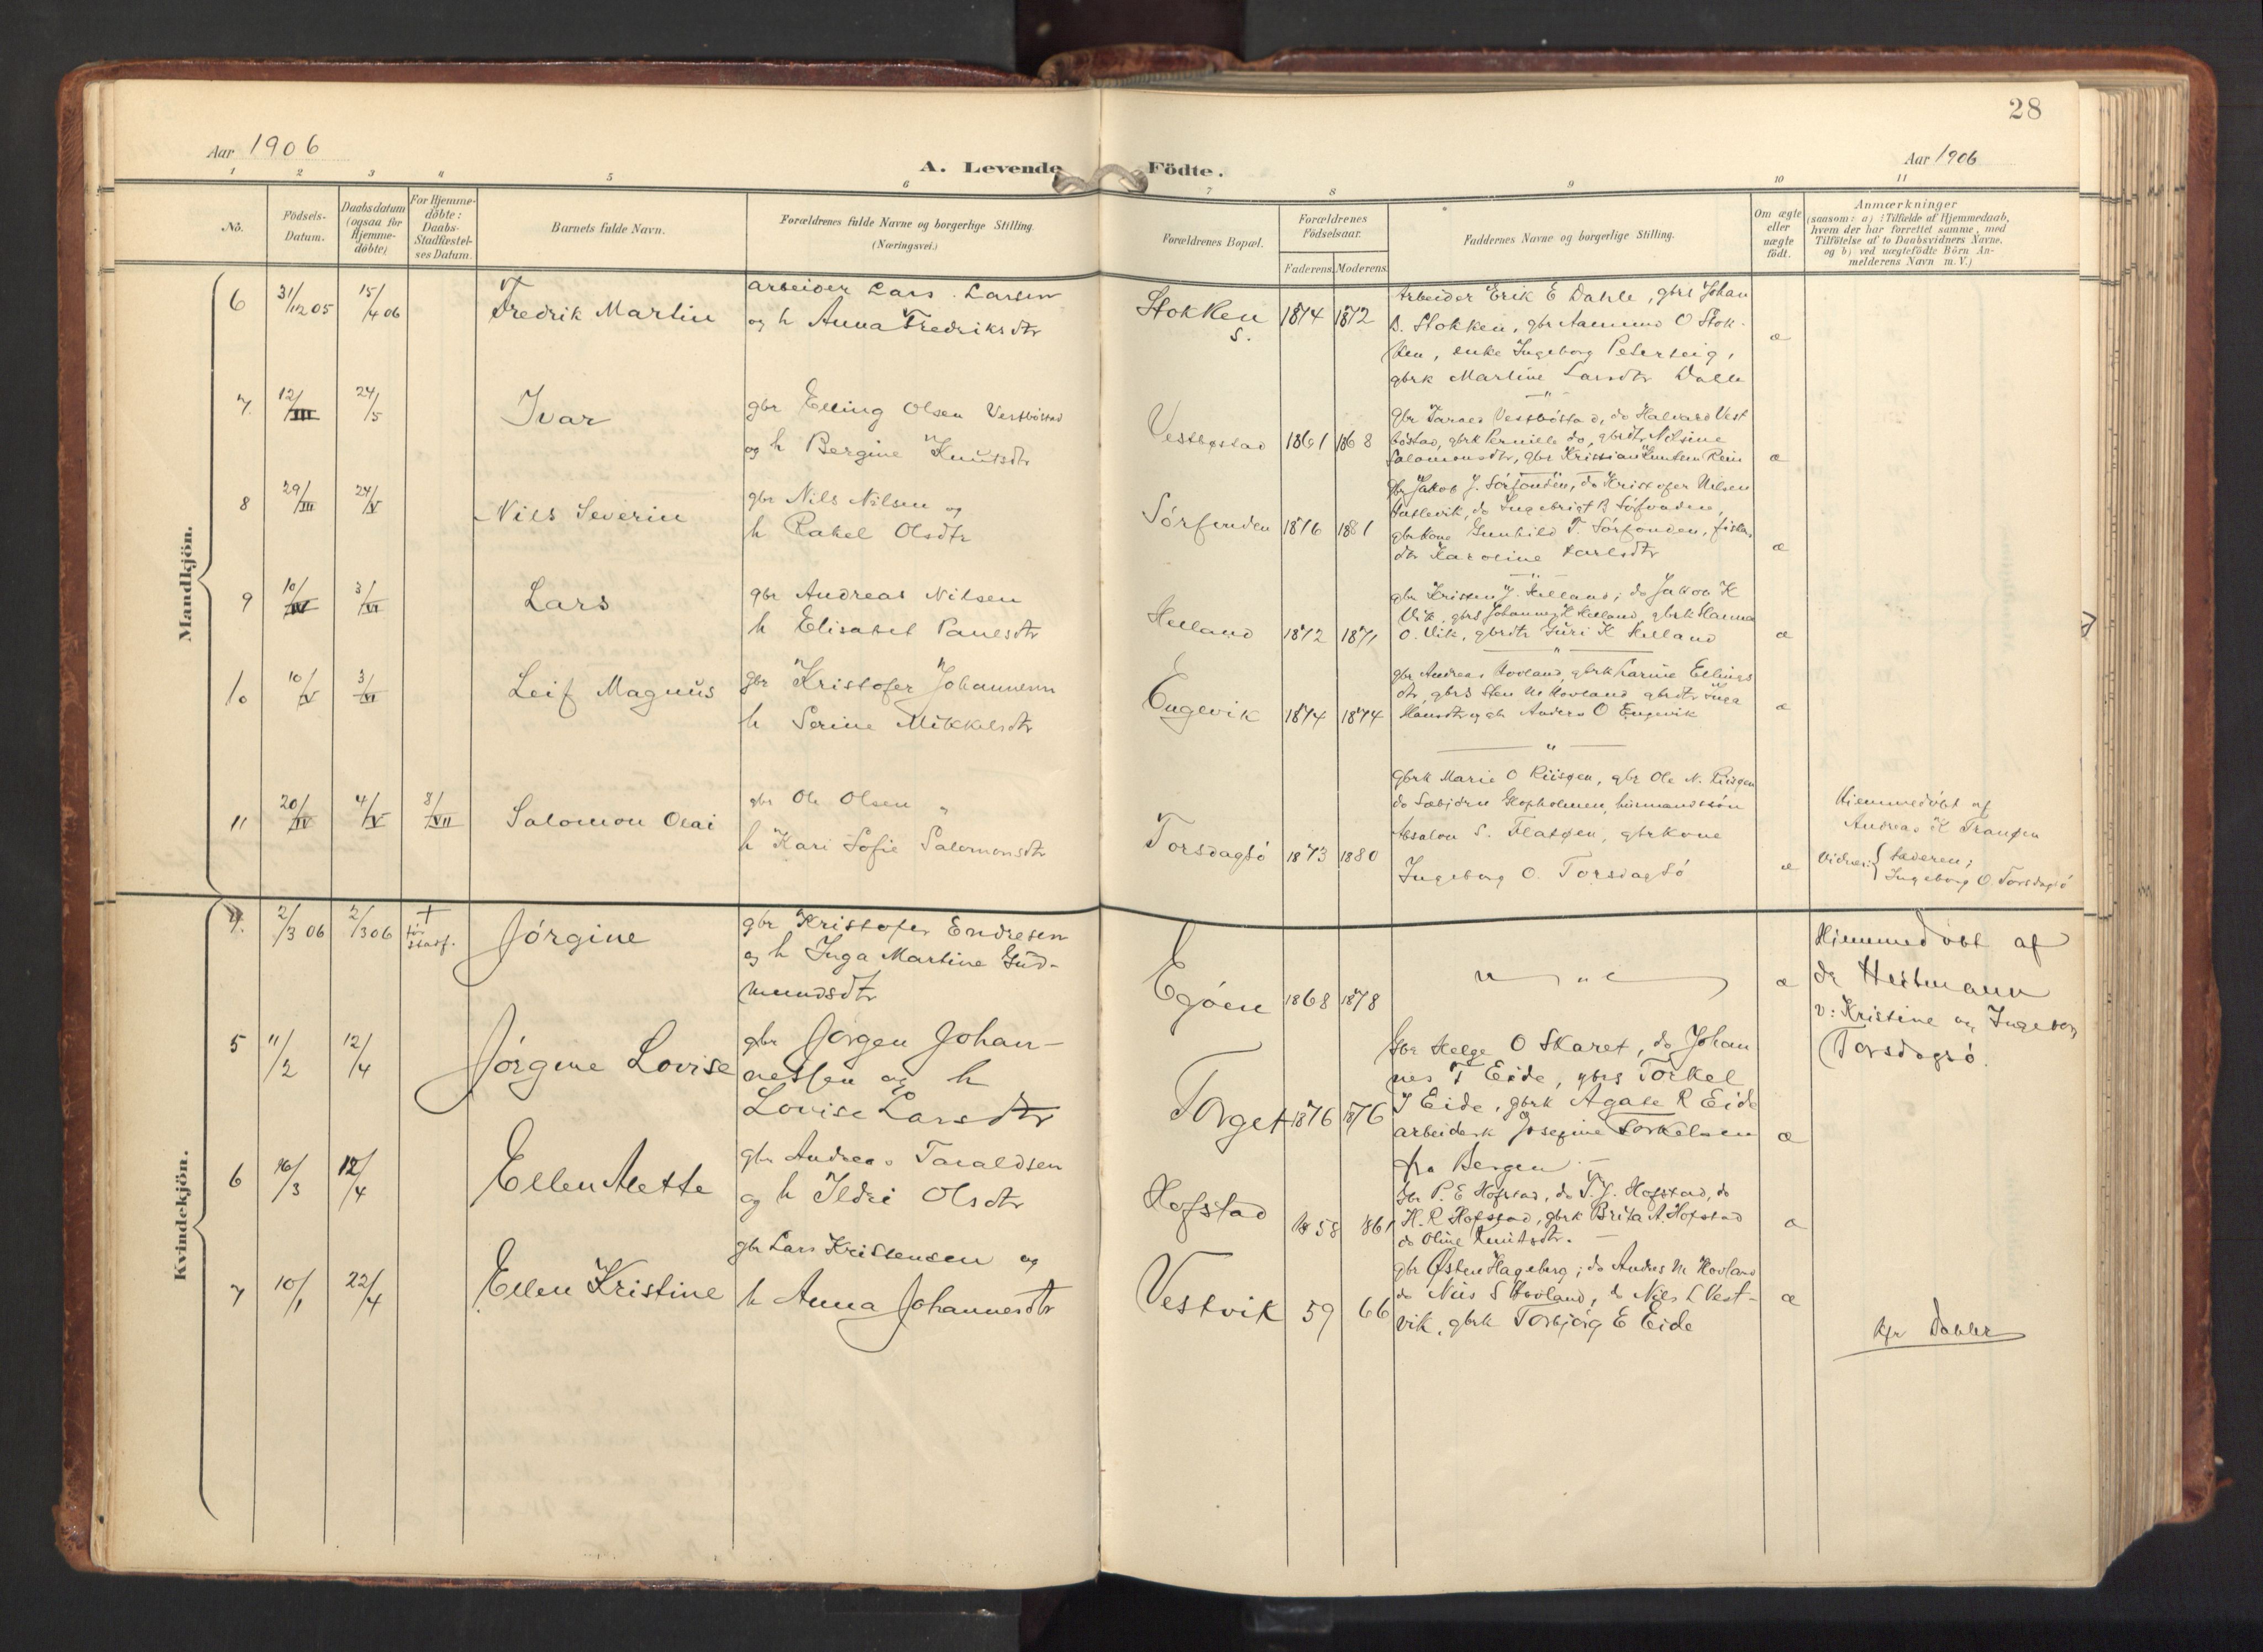 28
Aar 1906
A. Levende Födte.
Aar 1906
1 2 3 4 5 6 7 8 9 10 11
No.
Födsels-
Datum.
Daabsdatum
(ogsaa for
Hjemme-
döbte)
For Hjemme-
döbte:
Daabs-
Stadfæstel-
ses Datum.
Barnets fulde Navn.
Forældrenes fulde Navne og borgerlige Stilling.
(Næringsvei.)
Forældrenes Bopæl.
Forældrenes
Födselsaar.
Faderens. Moderens.
Faddernes Navne og borgerlige Stilling.
Om ægte
eller
uægte
födt.
Anmærkninger
(saasom: a) : Tilfælde af Hjemmedaab,
hvem der har forrettet samme, med
Tilföielse af to Daabsvidners Navne,
og b) ved uægtefödte Börn An-
melderens Navn m. V.)
Mandkjön.
6 31/12 05 15/4 06 Fredrik Martin
arbeider Lars Larsen
og h Anna Fredriksdtr
Stokken
S.
1874 1872
Arbeider Erik E Dahle, gbrs Johan
B. Stokken, gbr Aanund O Stok-
ken, enke Ingeborg Peterteig,
gbrk Martine Larsdtr Dahle
æ
7. 12/III 24/5 Ivar
gbr Elling Olsen Vestböstad
og h Bergine Knutsdtr
Vestbøstad 1861 1868
gbr Tarald Vestböstad, do Halvard Vest
böstad, gbrk Pernille do, gbrdtr Nilsine
Salomonsdtr, gbr Kristian Knutsen Rein
æ
8 29/III 24/V Nils Severin
gbr Nils Nilsen og
h Rakel Olsdtr
Sörfonden 1876 1881
gbr Jakob J. Sörfonden, do Kristofer Nilsen
Haslevik, do Ingebrigt B Sörfonden,
gbrkone Gunhild T. Sörfonden, fisker
dtr Karoline Karlsdtr
æ
9 10/IV 3/VI Lars
gbr Andreas Nilsen
h Elisabet Paulsdtr
Helland 1872 1871
gbr Kristen J. Helland, do Jakob K
Vik, gbrs Johannes K Helland, gbrk Hanna
O. Vik, gbrdtr Guri K Helland
æ
10 10/V 3/VI Leif Magnus
gbr Kristofer Johannesen
h Serine Mikkelsdtr
Engevik 1874 1874
gbr Andreas Hovland, gbrk Karine Ellings
dtr, gbrs Sten M Hovland gbrdtr Inga
Hansdtr og gbr Anders O Engevik
æ
11 20/IV 4/V 8/VII Salomon Olai
gbr Ole Olsen
h Kari Sofie Salomonsdtr
Torsdagsö 1873 1880
gbrk Marie O Riisøen, gbr Ole N. Riisøen
do Sæbjörn Gropholmen, husmandssön
Absalon S. Flatøen, gbrkone
Ingeborg O. Torsdagsö
æ
Hjemmedöbt af
Andreas K Tranøen
Vidner: { Faderen;
Ingeborg O. Torsdagsö
Kvindekjön.
4. 2/3 06 2/3 06 + för stadf. Jörgine
gbr Kristofer Endresen
og h Inga Martine Gud-
mundsdtr
Egöen 1868 1878
æ
Hjemmedöbt af
dr Heitmann
v: Kristine og Ingeborg
Torsdagsö.
5 11/2 12/4 Jörgine Lovise
gbr Jörgen Johan-
nessen og h
Lovise Larsdtr
Torget 1876 1876
Gbr Helge O Skaret, do Johan
nes T Eide, gbrs Torkel
J Eide, gbrk Agate R Eide
arbeiderk Josefine Torkelsen
fra Bergen
æ
6 16/3 12/4 Ellen Mette
gbr Andreas Taraldsen
og h Ildri Olsdtr
Hofstad 1858 1861
Gbr P. E Hofstad, do T. J. Hofstad, do
H. R Hofstad, gbrk Brita A. Hofstad
do Oline Knutsdtr.
æ
7 10/1 22/4 Ellen Kristine
gbr Lars Kristensen og
h Anna Johannesdtr
Vestvik 59 66
gbr Østen Hageberg; do Anders M Hovland
do Nils S Hovland, do Nils L Vest-
vik, gbrk Torbjörg E Eide
æ
Kfr Döbler